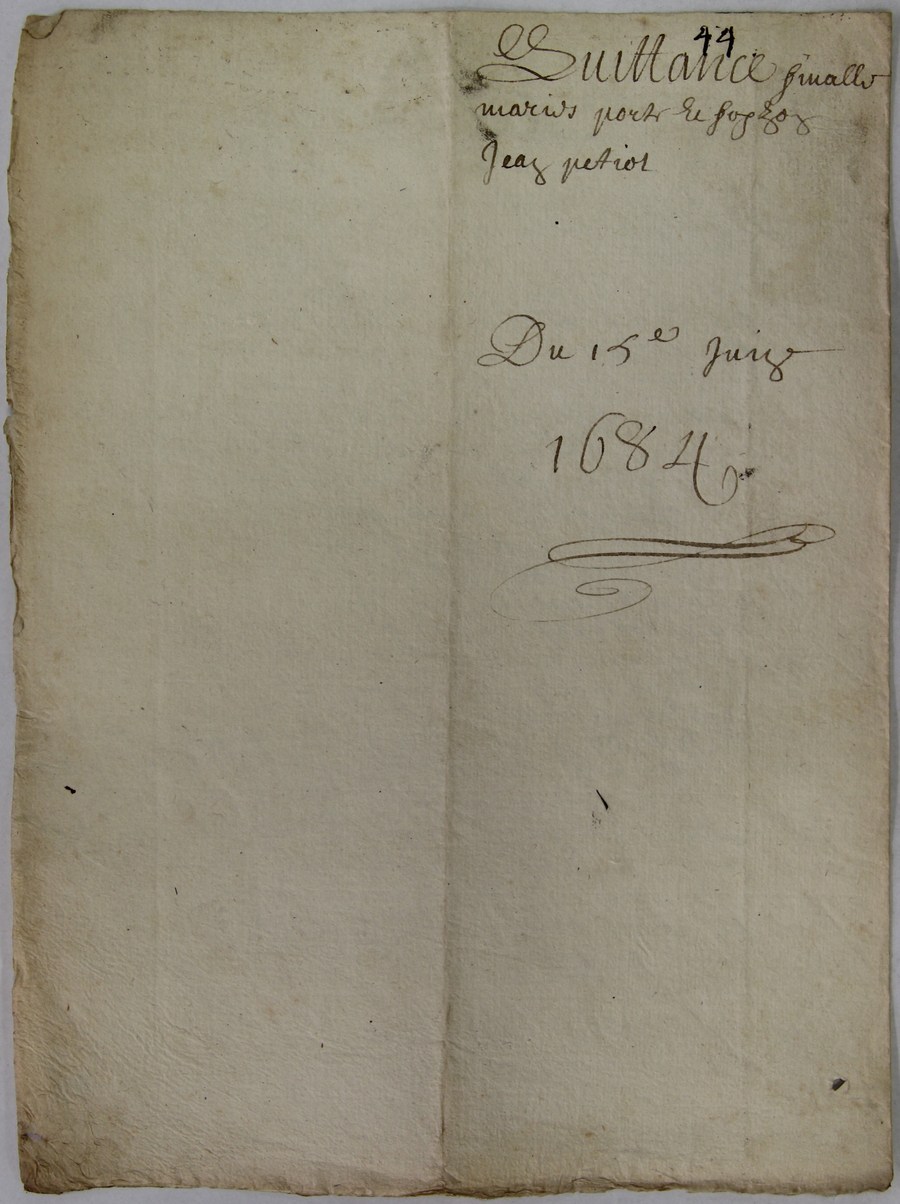 44
Quittance finalle
marie porte et
Jean petiot
Du 15e Juin
1684